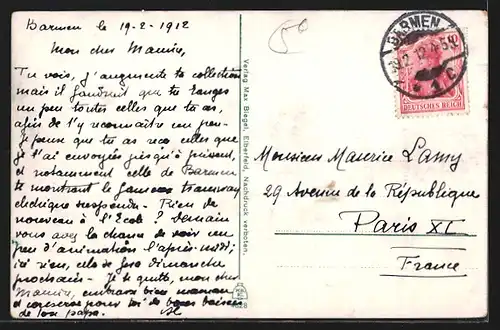 Barmen le 19-2-1912
Mon cher Maurice,
Tu vois, j'augmente ta collection
mais il faudrait que tu ranges
un peu toutes celles que tu as,
afin de t'y reconnaître un peu-
Je pense que tu as reçu celles que
je t'ai envoyées jusqu'à présent,
et notamment celle de Barmen
te montrant le fameux tramway
électrique suspendu. Rien de
nouveau à l'École? Demain
vous avez la chance de voir un
peu d'animation l'après-midi;
ici rien, cela se fera dimanche
prochain. Je te quitte, mon cher
Maurice, embrasse bien maman
et conserve pour toi de bons baisers
de ton papa.
Verlag Max Biegel, Elberfeld, Nachdruck verboten.
BARMEN
DEUTSCHES REICH
10
Monsieur Maurice Lamy
29 Avenue de la République
Paris XI
France